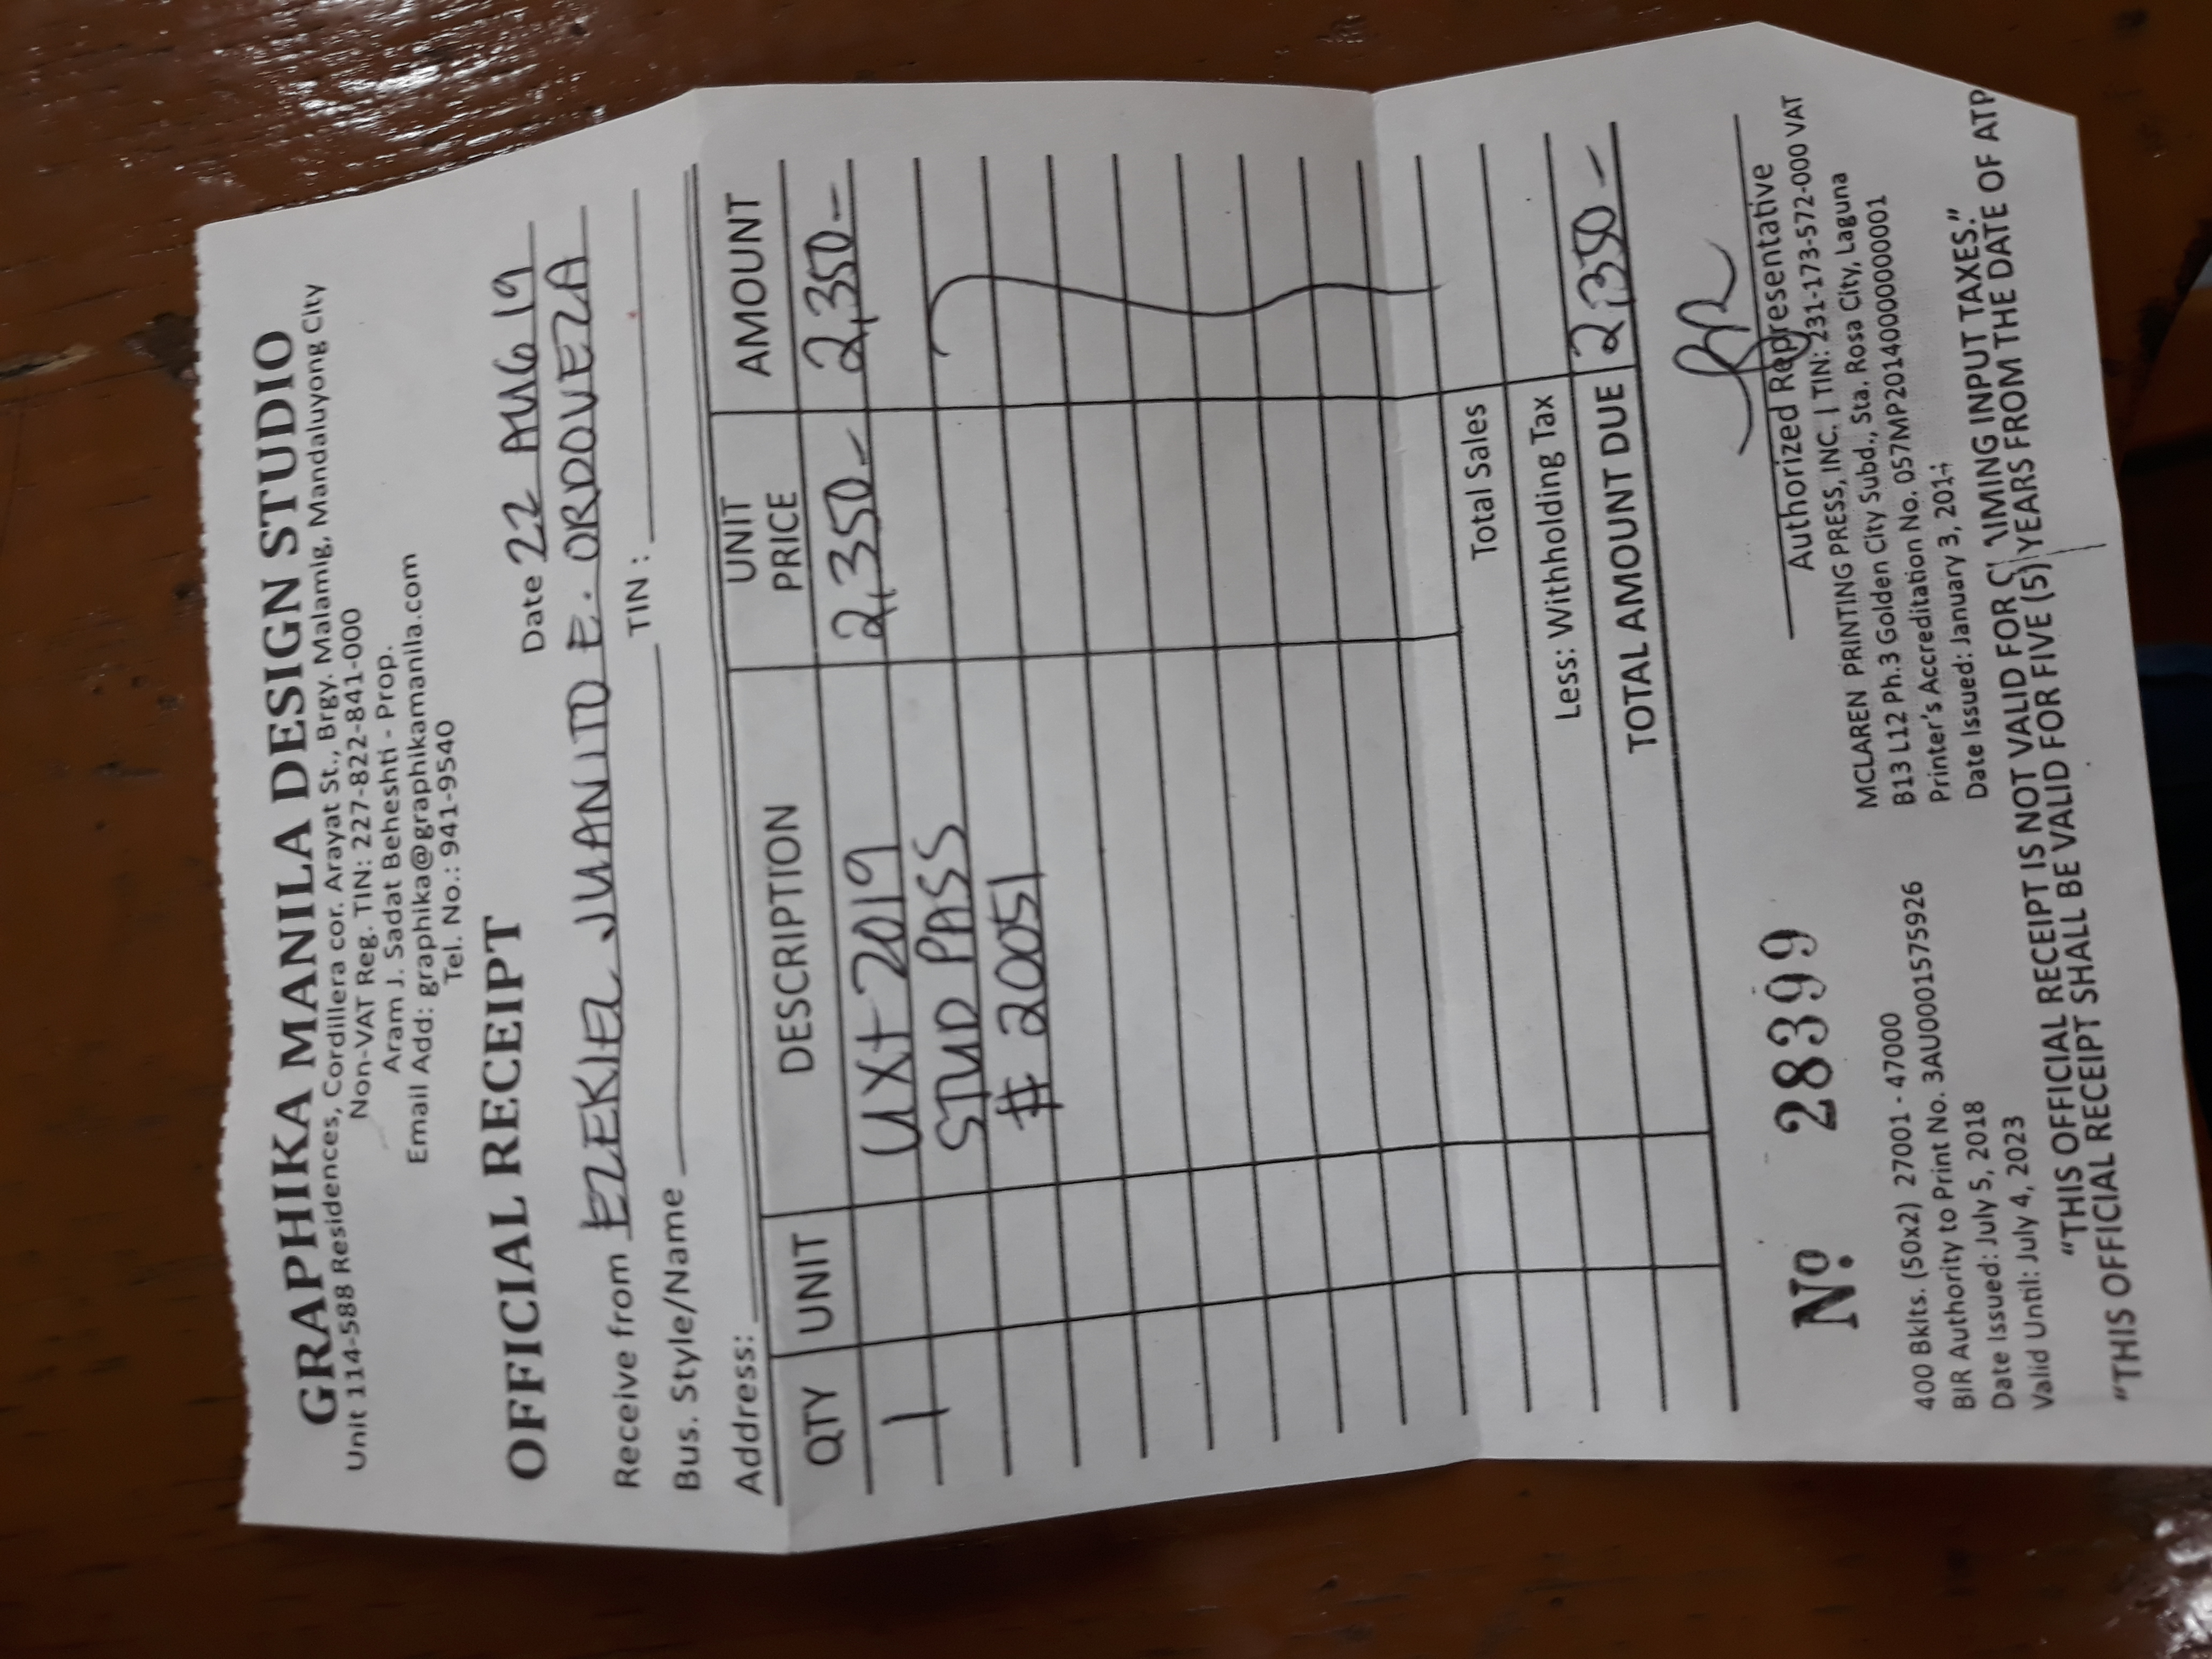 GRAPHIKA MANILA DESIGN STUDIO
Unit 114-588 Residences, Cordillera cor. Arayat St., Brgy. Malamig, Mandaluyong City
Non-VAT Reg. TIN: 227-822-841-000
Aram J. Sadat Beheshti - Prop.
Email Add: graphika@graphikamanila.com
Tel. No.: 941-9540
OFFICIAL RECEIPT
Date 22 AUG 19
Receive from EZEKIEL JUANITO E. ORDOVEZA
Bus. Style/Name TIN :
Address:
QTY UNIT DESCRIPTION UNIT PRICE AMOUNT
1 UX+ 2019 2,350- 2,350-
STUD PASS
# 20051
Total Sales
Less: Withholding Tax
TOTAL AMOUNT DUE 2,350-
Authorized Representative
Nº 28399
400 Bklts. (50x2) 27001 - 47000
BIR Authority to Print No. 3AU0001575926
Date Issued: July 5, 2018
Valid Until: July 4, 2023
MCLAREN PRINTING PRESS, INC. | TIN: 231-173-572-000 VAT
B13 L12 Ph.3 Golden City Subd., Sta. Rosa City, Laguna
Printer's Accreditation No. 057MP20140000000001
Date Issued: January 3, 2014
"THIS OFFICIAL RECEIPT IS NOT VALID FOR CLAIMING INPUT TAXES."
"THIS OFFICIAL RECEIPT SHALL BE VALID FOR FIVE (5) YEARS FROM THE DATE OF ATP